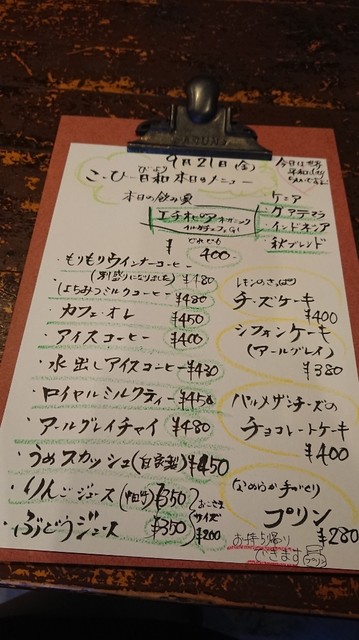 9月21日(金)
今日は世界
平和の日
こ〜ひ〜日和 本日のメニュー
びより
本日の飲み頃
ケニア
エチオピア オーガニック
イルガチェフェG1
グアテマラ
インドネシア
秋ブレンド
どれでも
¥400
・もりもりウインナーコーヒー
(別盛りになりました) ¥480
・はちみつミルクコーヒー ¥480
・カフェ・オレ ¥450
・アイスコーヒー ¥400
・水出しアイスコーヒー ¥430
・ロイヤルミルクティー ¥450
・アールグレイチャイ ¥480
・うめスカッシュ(自家製) ¥450
・りんごジュース ¥350
・ぶどうジュース ¥350
おこさま
サイズ
¥200
レモンのさっぱり
チーズケーキ
¥400
シフォンケーキ
(アールグレイ)
¥380
パルメザンチーズの
チョコレートケーキ
¥400
なめらか手づくり
プリン
¥280
お持ち帰り
できます
プリン